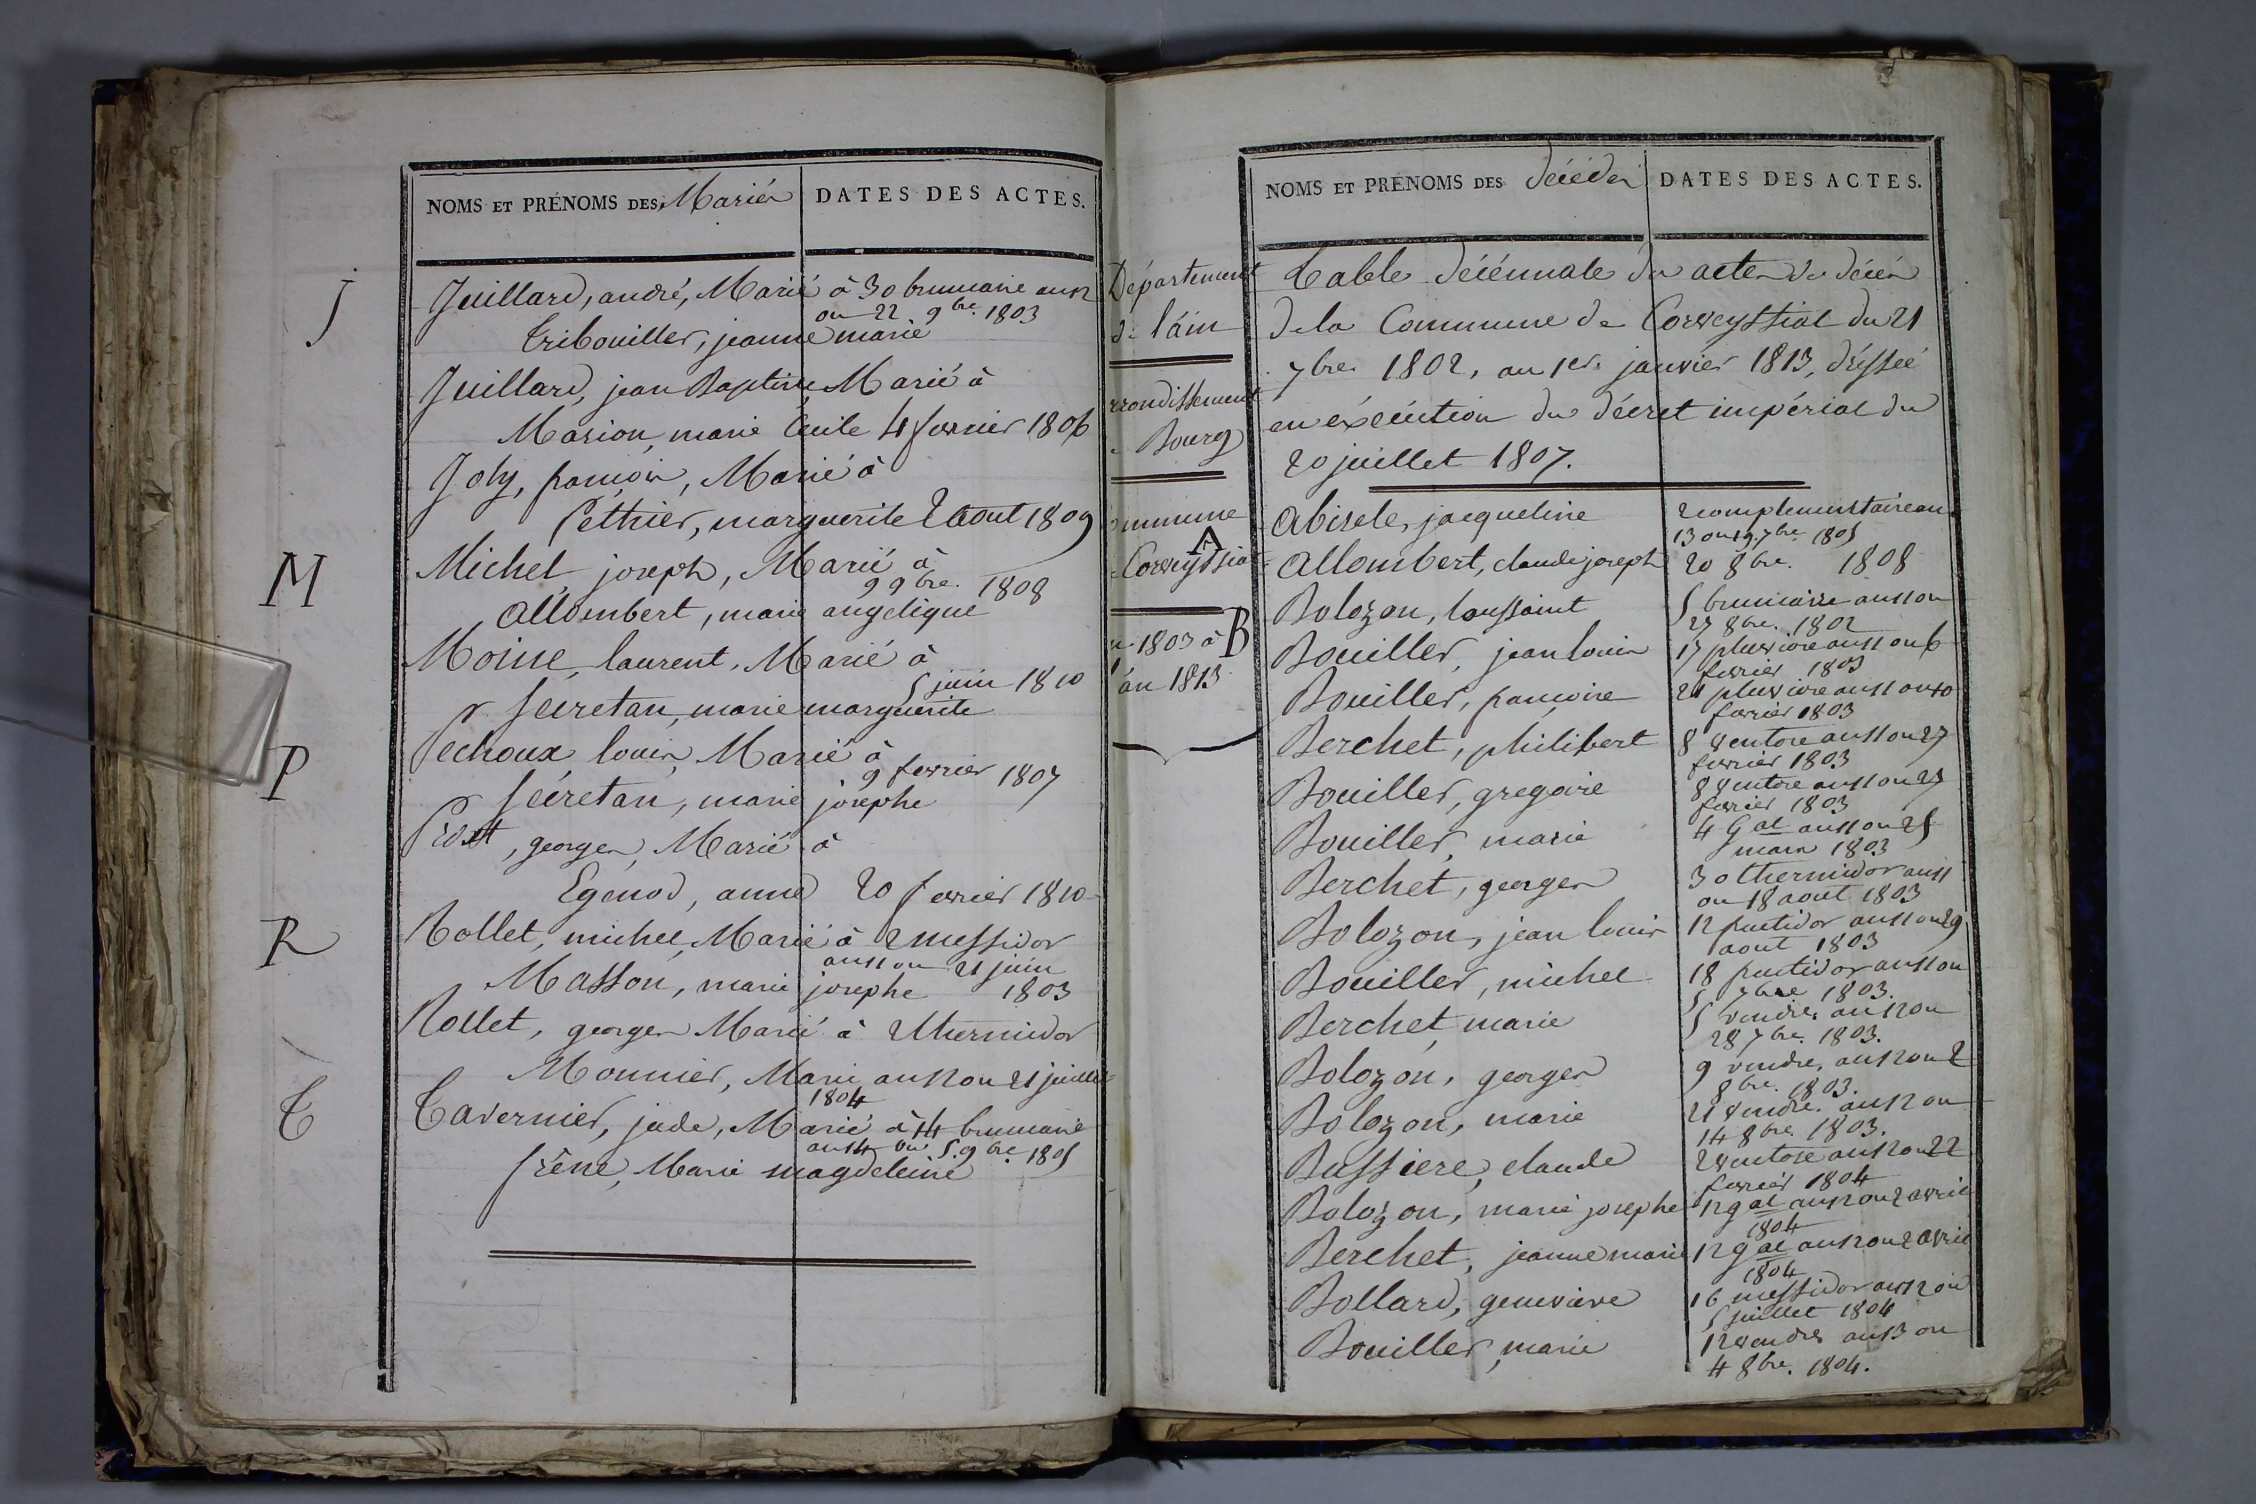 NOMS ET PRÉNOMS DES Mariés
DATES DES ACTES.
J
Juillard, andré, Marié à 30 brumaire an 12
ou 22 9bre. 1803
Tribouiller, jeanne marie
Juillard, jean Baptiste, Marié à
Marion, marie Cecile 4 fevrier 1806
Joly, françois, Marié à
Péthier, marguerite 2 aout 1809
M
Michel joseph, Marié à
9 9bre. 1808
allombert, marie angelique
Moine, laurent, Marié à
5 juin 1810
Sécretan, marie marguerite
P
Pechoux louis, Marié à
9 fevrier 1807
Sécretan, marie josephe
Prost, georges, Marié à
Egénod, anne 20 fevrier 1810
R
Rollet, michel, Marié à 2 messidor
an 11 ou 21 juin
Masson, marie josephe 1803
Rollet, georges Marié à 2 thermidor
Monnier, Marie an 12 ou 21 juillet
1804
T
Tavernier, jude, Marié à 14 brumaire
an 14 ou 5. 9bre. 1805
frêne, Marie magdeleine
Département
de l'ain
rrondissement
Bourg
ommune
Corveyssia
1803 à
an 1813
NOMS ET PRÉNOMS DES décédés
DATES DES ACTES.
Table décénnale des actes de décés
de la Commune de Corveyssiat du 21
7bre. 1802, au 1er. janvier 1813, dréssée
en éxécution du décret impérial du
20 juillet 1807.
A
abisele, jacqueline 2 complementaire an
13 ou 19. 7bre. 1805
allombert, claude joseph 20 8bre. 1808
B
Bolozon, toussaint 5 brumaire an 11 ou
27 8bre. 1802
Bouiller, jean louis 17 pluviose an 11 ou 6
fevrier 1803
Bouiller, françoise 21 pluviose an 11 ou 10
fevrier 1803
Berchet, philibert 8 ventose an 11 ou 27
fevrier 1803
Bouiller, gregoire 8 ventose an 11 ou 27
fevrier 1803
Bouiller, marie 4 Gal an 11 ou 25
mars 1803
Berchet, georges 30 thermidor an 11
ou 18 aout 1803
Bolozon, jean louis 12 fructidor an 11 ou 29
aout 1803
Bouiller, michel 18 fructidor an 11 ou
5 7bre 1803.
Berchet, marie 5 vendre. an 12 ou
28 7bre. 1803.
Bolozon, georges 9 vendre. an 12 ou 2
8bre. 1803.
Bolozon, marie 21 vendre. an 12 ou
14 8bre. 1803.
Bussiere, claude 2 ventose an 12 ou 22
fevrier 1804
Bolozon, marie josephe 12 gal an 12 ou 2 avril
1804
Berchet, jeanne marie 12 gal an 12 ou 2 avril
1804
Bollard, genevieve 16 messidor an 12 ou
5 juillet 1804
Bouiller, marie 12 vendre an 13 ou
4 8bre. 1804.